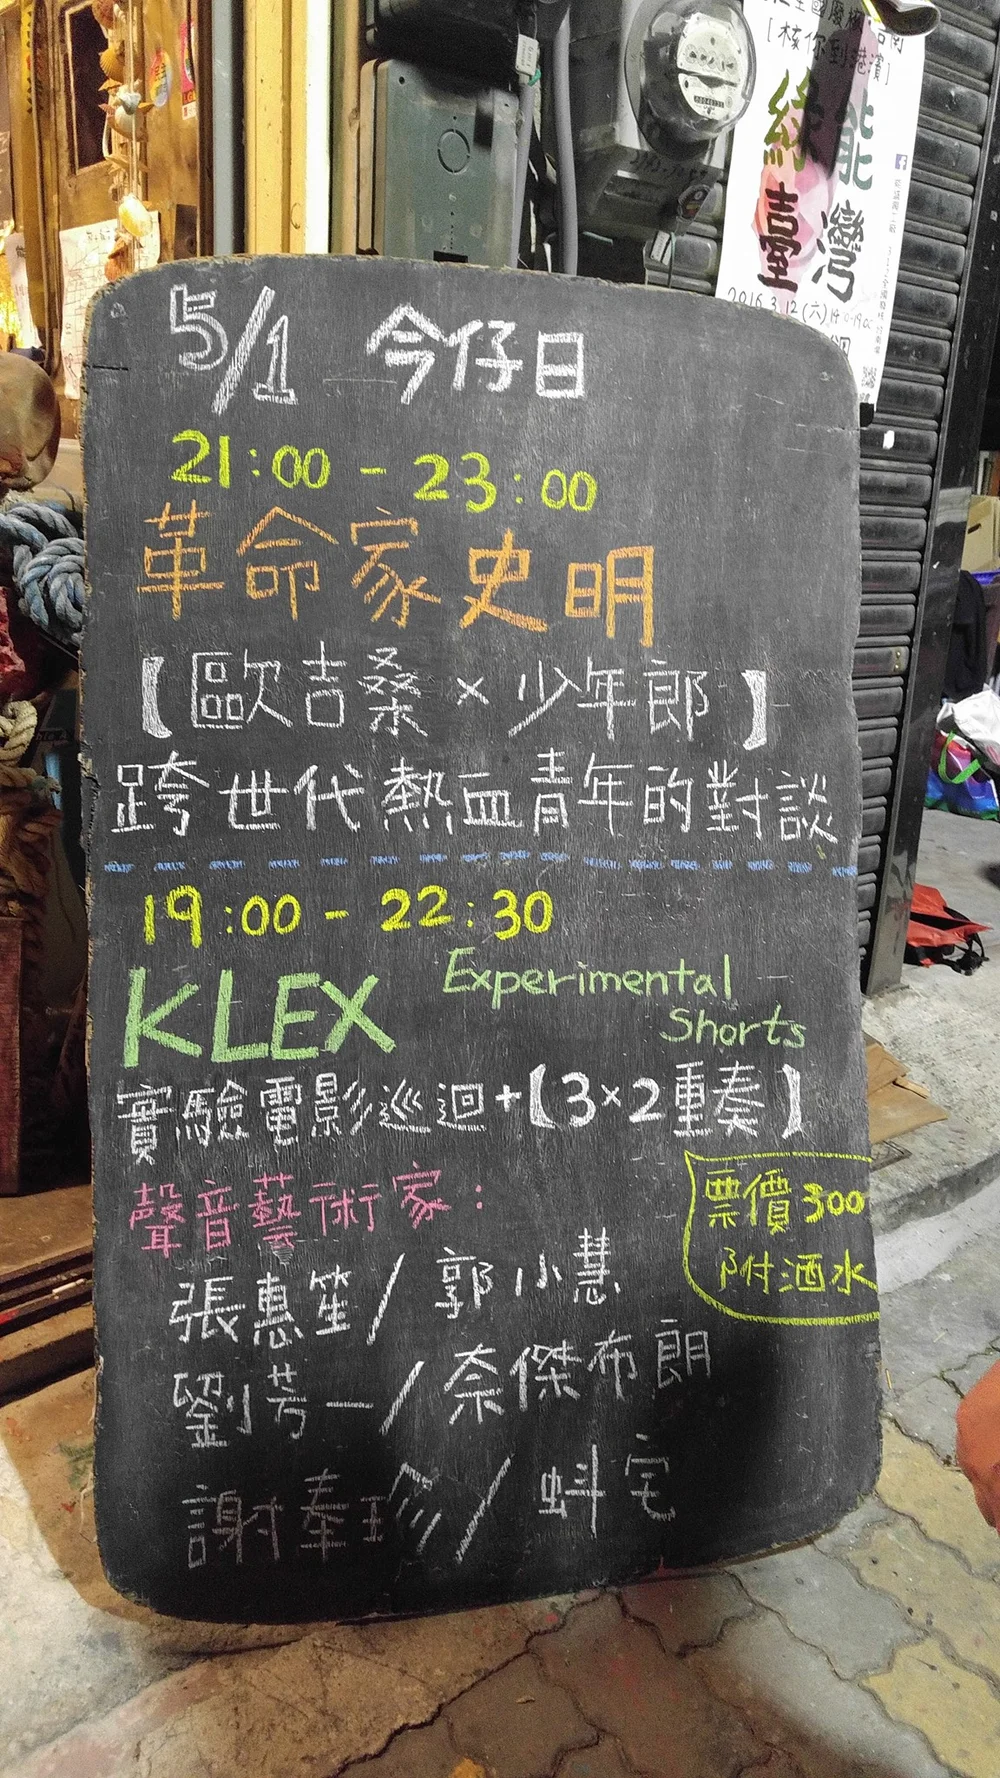 5/1 今仔日
21:00 - 23:00
革命家史明
【歐吉桑 × 少年郎】
跨世代熱血青年的對談
19:00 - 22:30
KLEX Experimental
Shorts
實驗電影巡迴+【3×2重奏】
聲音藝術家：
票價300
附酒水
張惠笙/郭小慧
劉芳一/奈傑布朗
謝奉珍/蚪宅
[核你到港灣]
綠能
臺灣
2016.3.12(六)